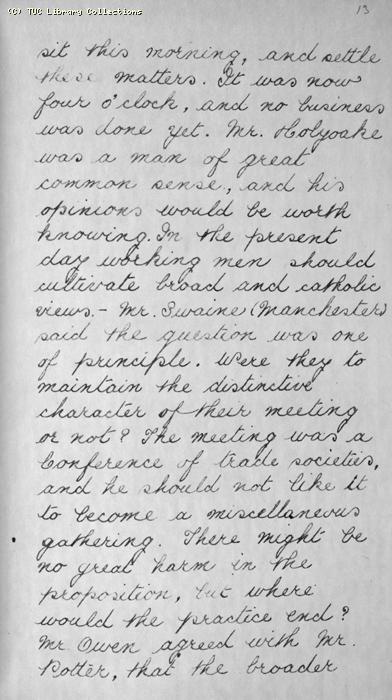 (C) TUC Library Collections
13
sit this morning, and settle
these matters. It was now
four o'clock, and no business
was done yet. Mr. Holyoake
was a man of great
common sense, and his
opinions would be worth
knowing. In the present
day working men should
cultivate broad and catholic
views. - Mr. Swaine (Manchester)
said the question was one
of principle. Were they to
maintain the distinctive
character of their meeting
or not? The meeting was a
Conference of trade societies,
and he should not like it
to become a miscellaneous
gathering. There might be
no great harm in the
proposition, but where
would the practice end?
Mr. Owen agreed with Mr.
Potter, that the broader